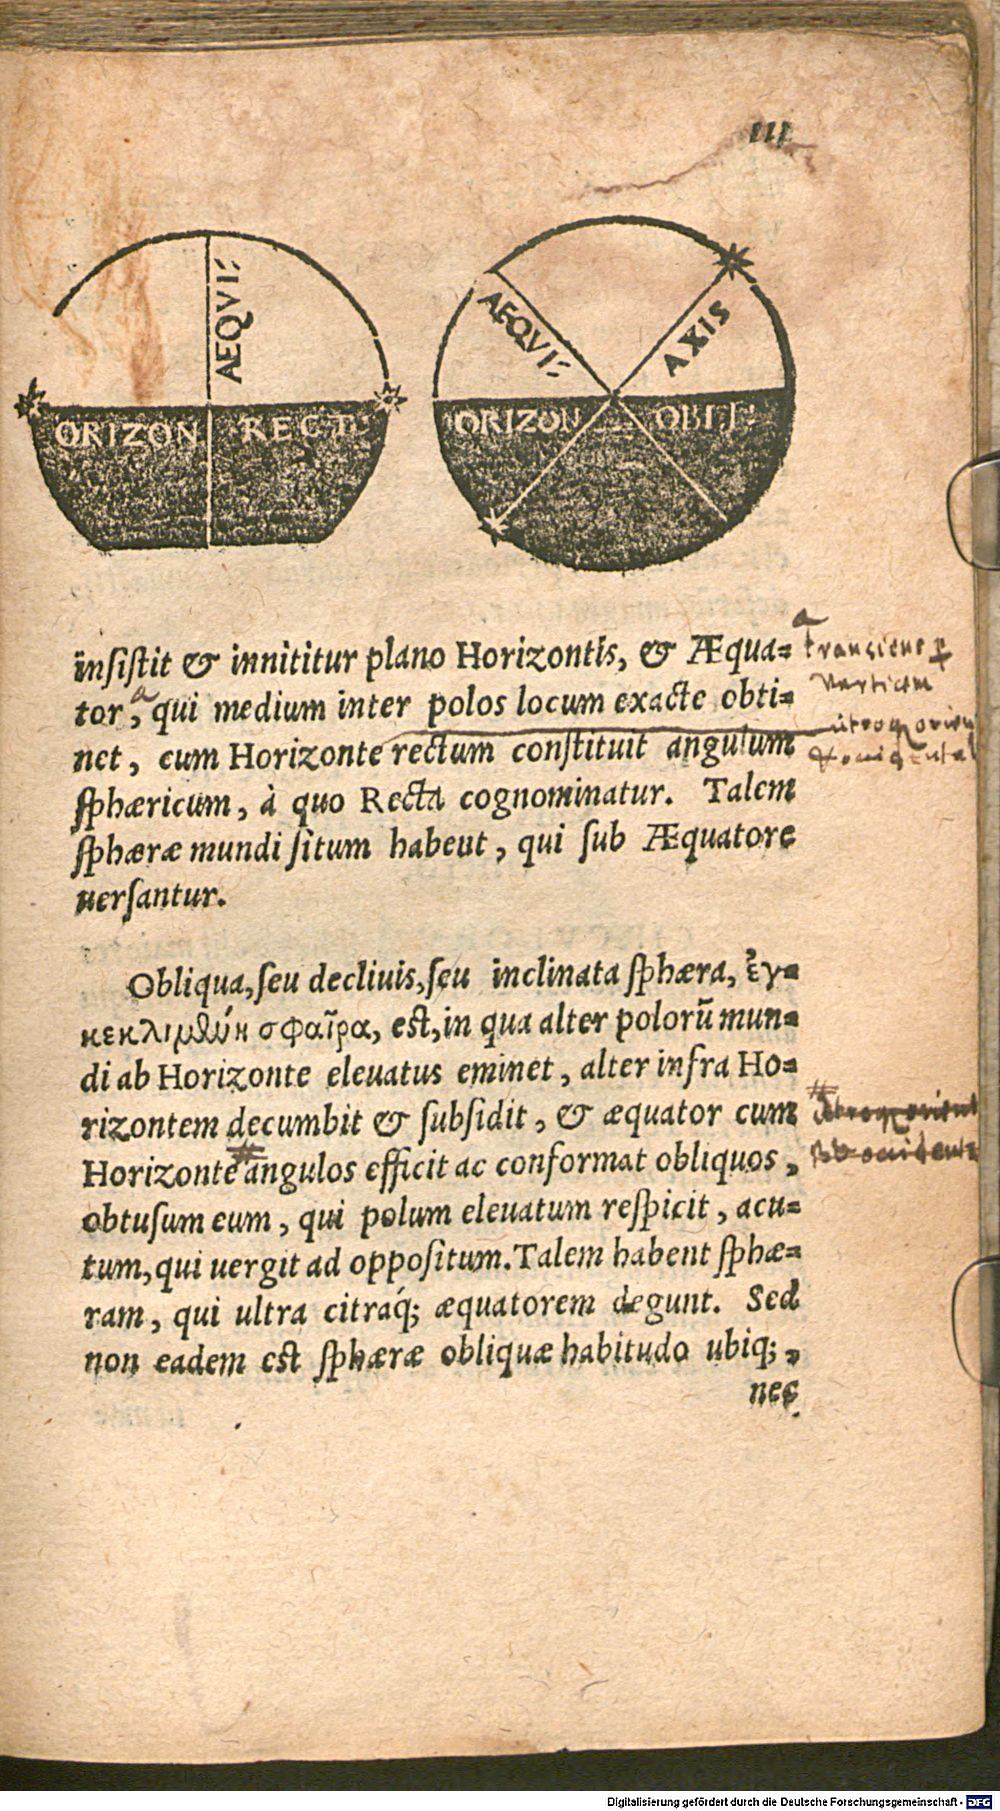 III
AEQVI:
AEQVI:
AXIS
ORIZON RECT:
ORIZON OBLI:
insistit & innititur plano Horizontis, & Æqua=
tor, qui medium inter polos locum exacte obti=
net, cum Horizonte rectum constituit angulum
sphæricum, à quo Recta cognominatur. Talem
sphæræ mundi situm habent, qui sub Æquatore
uersantur.
Obliqua, seu decliuis, seu inclinata sphæra, ἐγ=
κεκλιμένη σφαῖρα, est, in qua alter polorū mun=
di ab Horizonte eleuatus eminet, alter infra Ho=
rizontem decumbit & subsidit, & æquator cum
Horizonte angulos efficit ac conformat obliquos,
obtusum eum, qui polum eleuatum respicit, acu=
tum, qui uergit ad oppositum. Talem habent sphæ=
ram, qui ultra citraq́; æquatorem degunt. Sed
non eadem est sphæræ obliquæ habitudo ubiq;,
nec
a
a
verticem
Digitalisierung gefördert durch die Deutsche Forschungsgemeinschaft - DFG